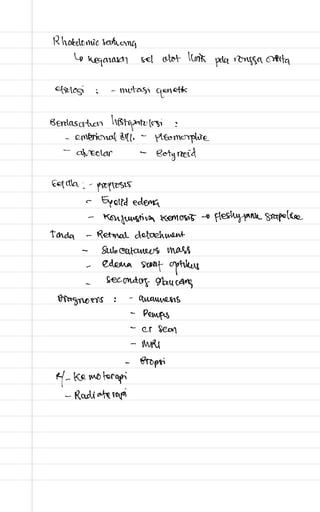 Rhabdomio sarkoma
↳ keganasan sel otot lurik pda rongga orbita
etiologi : - mutasi genetik
Berdasarkan histopatologi :
- embrional diff. - pleomorphic
- alveolar - Botyroid
Gejala : - proptosis
- Eyelid edema
- Konjungtiva kemosis → fleshy pink grapelike
Tanda - Retinal detachment
- Subcutaneus mass
- edema saraf optikus
- secondary glaucoma
Diagnosis : - anamnesis
- Pemfis
- CT Scan
- MRI
- Biopsi
R/ - Kemoterapi
- Radioterapi